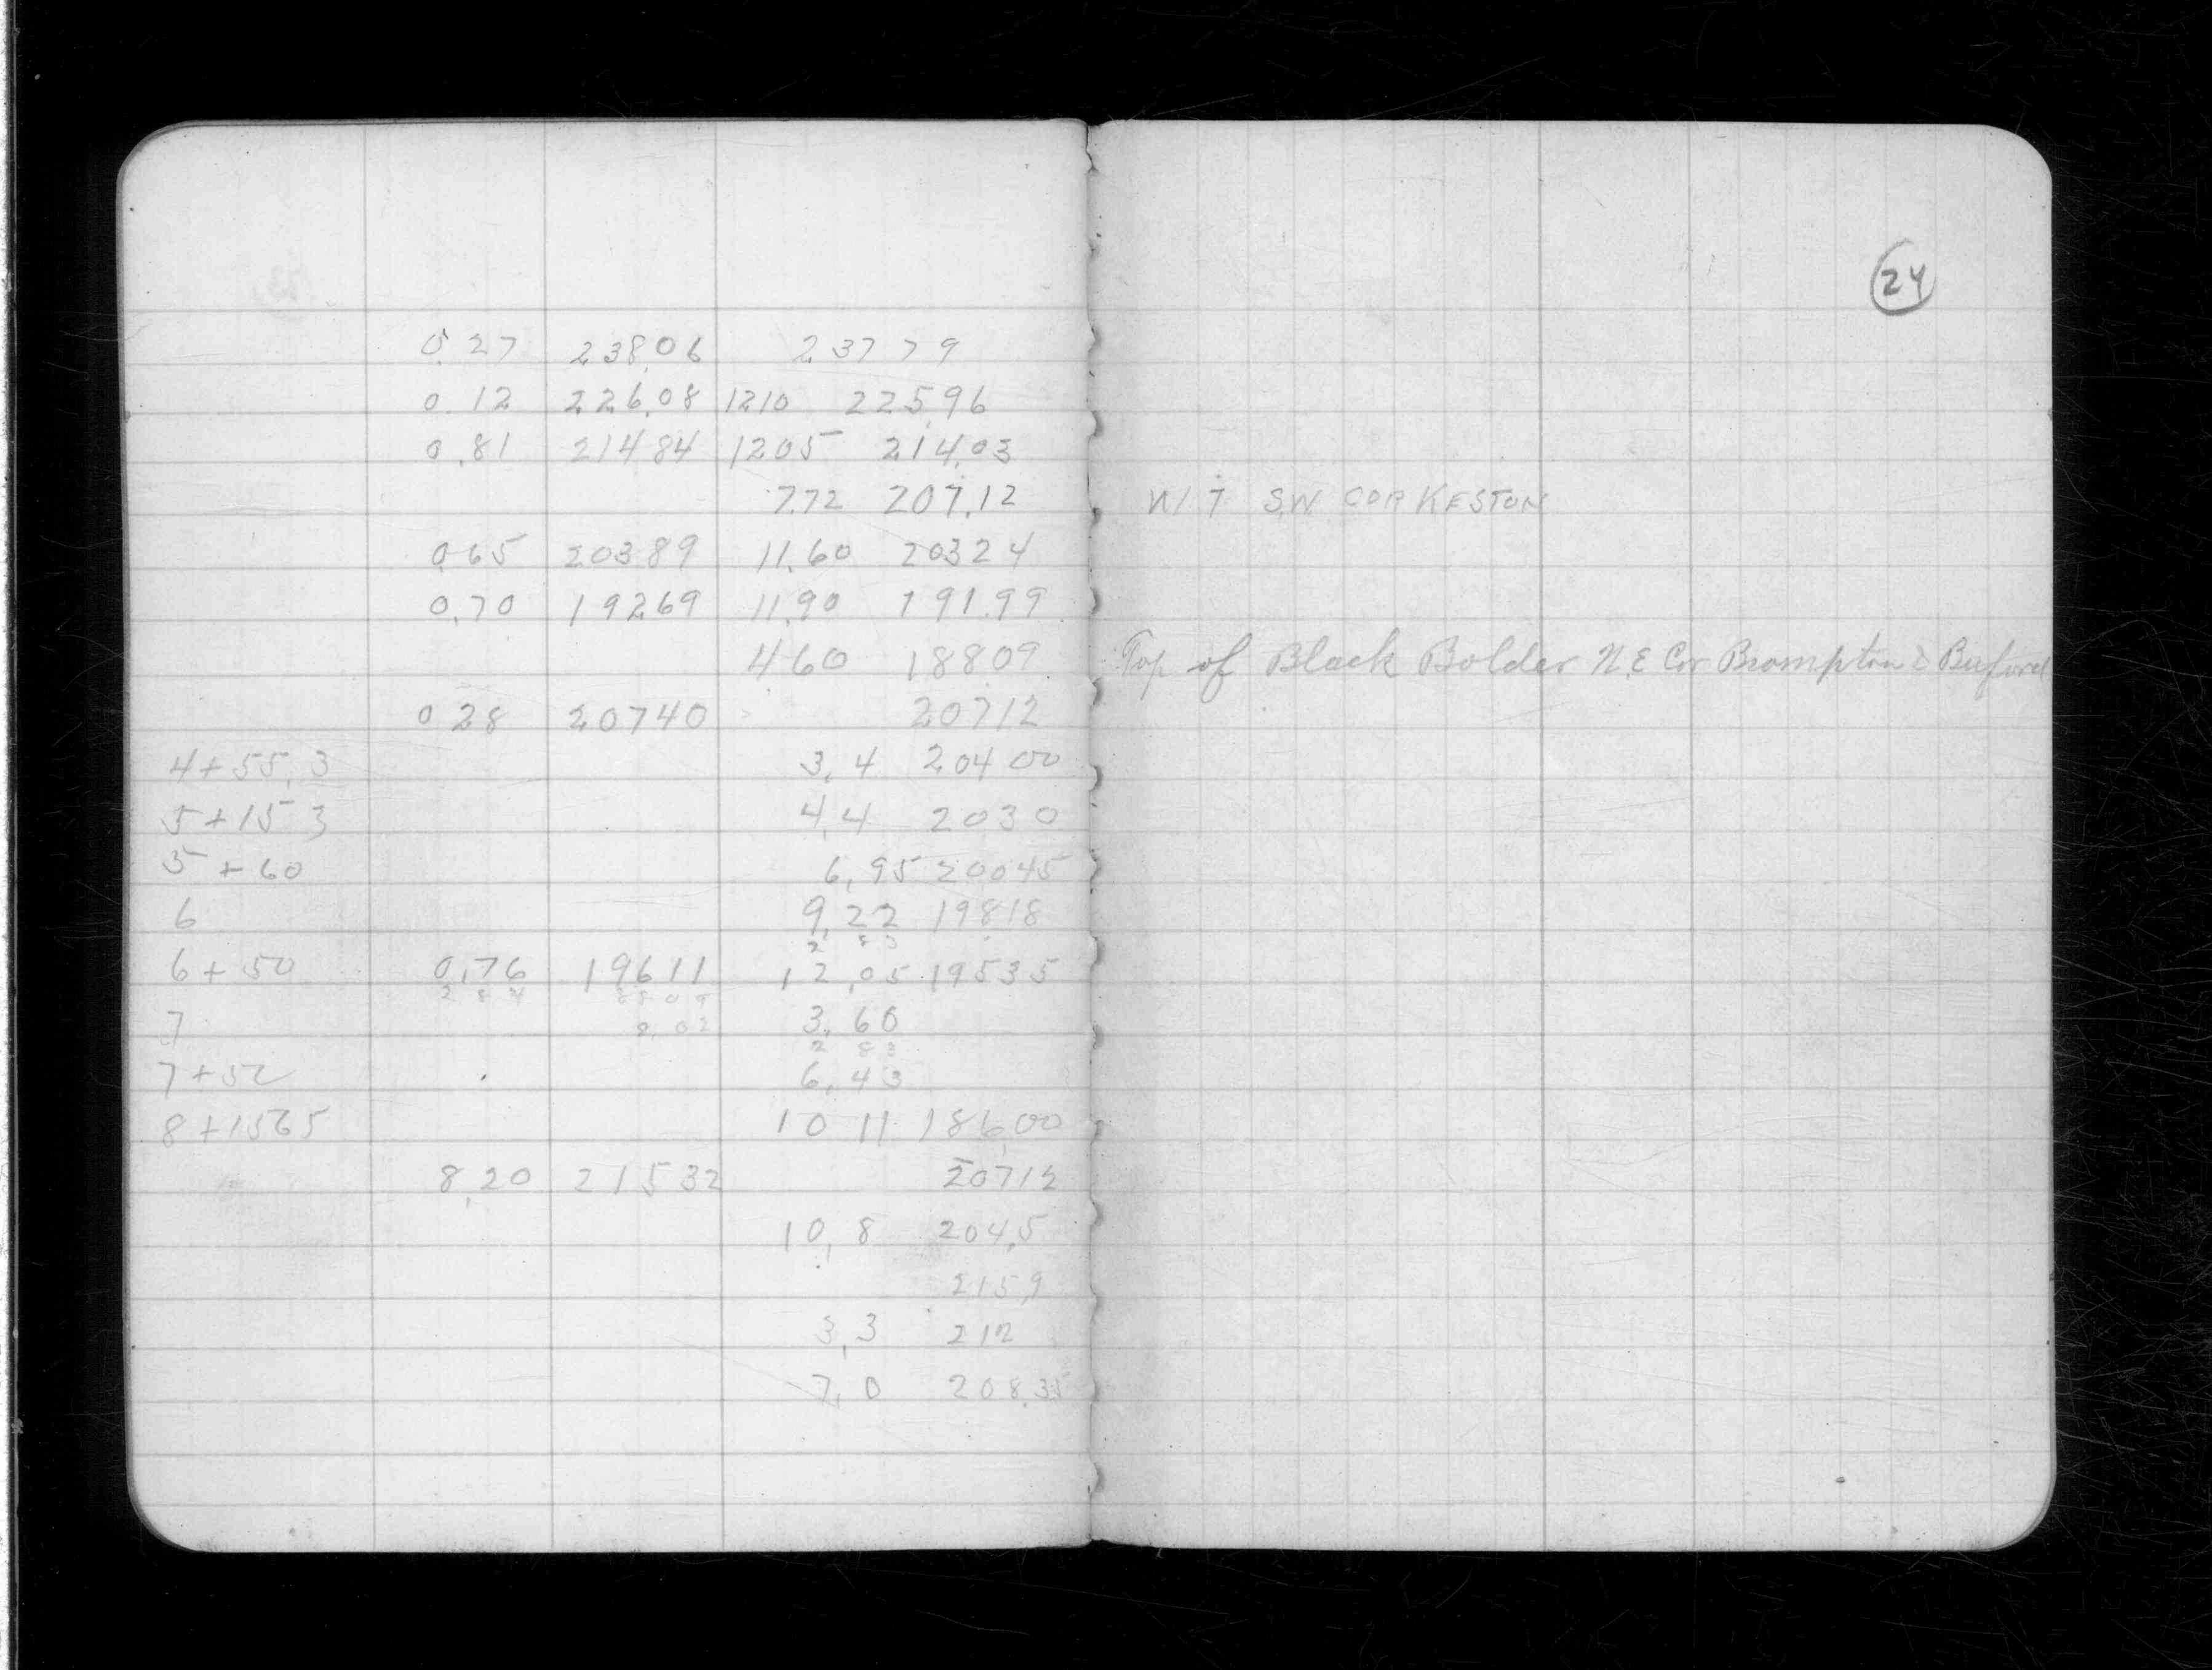 24
0.27 238.06 237 79
0.12 226.08 1210 225.96
0.81 214 84 1205 214.03
7.72 207.12 W/T S.W COR KESTON
0.65 203 89 11.60 203 24
0.70 192.69 11.90 191.99
4 60 188 09 Top of Black Bolder N.E Cor Brompton & Buford
0 28 207 40 207 12
4+55.3 3.4 204 00
5+15 3 4.4 203 0
5+60 6.95 200 45
6 9.22 198 18
2 83
6+50 0.76 196 11 12.05 195 35
2 8 4 88 0 9
7 3.60
2 83
7+52 6.43
8+1565 10 11 186.00
8.20 215 32 207 12
10.8 204.5
215.9
3.3 212
7.0 208.35